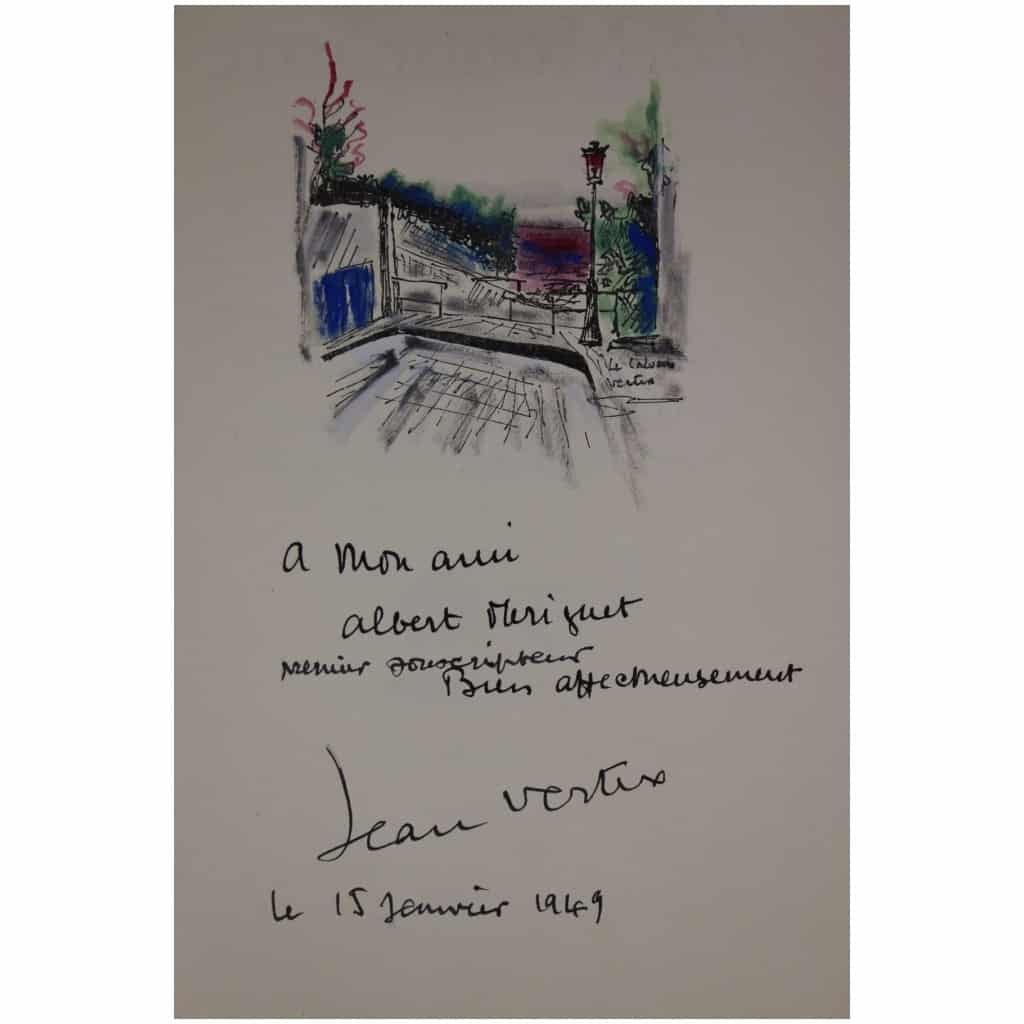 Le Calvaire
Vertex
A Mon ami
Albert Meriguet
premier souscripteur
Bien affectueusement
Jean Vertex
Le 15 Janvier 1949